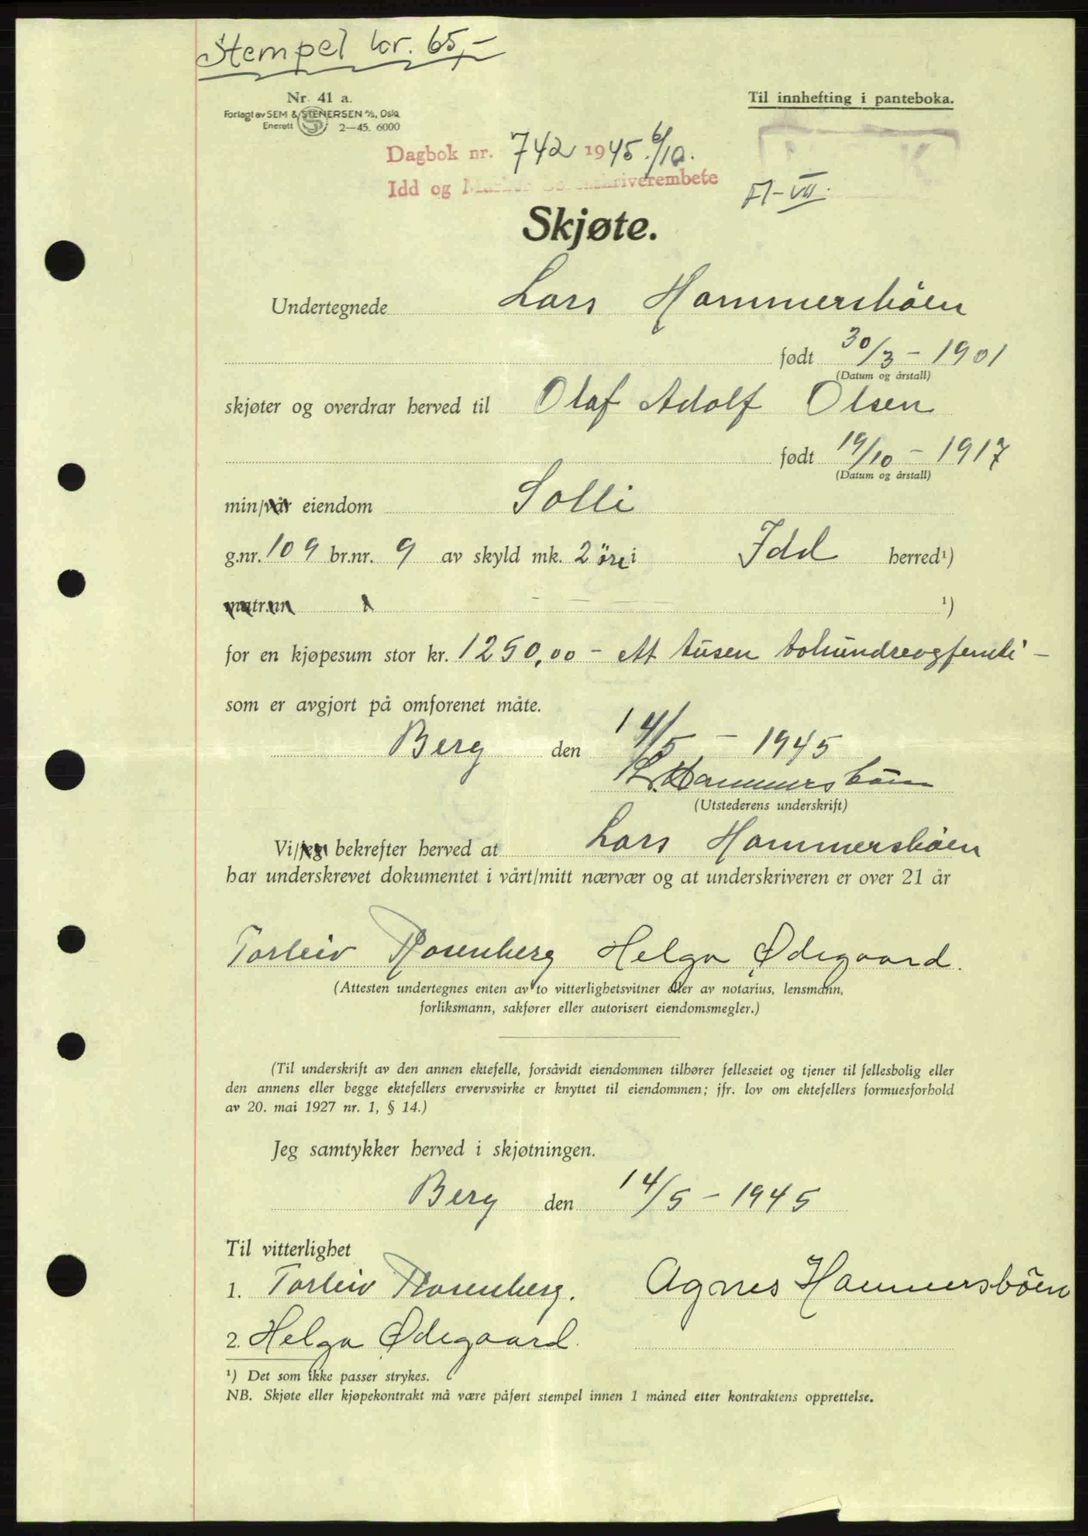 Stempel kr. 65,-
Nr. 41 a.
Forlagt av SEM & STENERSEN A/S, Oslo
Enerett 2—45. 6000
Til innhefting i panteboka.
Dagbok nr. 742 1945 6/10.
Idd og Marker Sorenskriverembete
A-VII.
Skjøte.
Undertegnede Lars Hammersbøen
født 30/3 - 1901
(Datum og årstall)
skjøter og overdrar herved til Olaf Adolf Olsen
født 19/10 - 1917
(Datum og årstall)
min/vår eiendom Solli
g.nr. 109 br.nr. 9 av skyld mk. 2 öre i Idd herred¹)
matr.nr. ¹)
for en kjøpesum stor kr. 1250,00 - Et tusen tohundreogfemti -
som er avgjort på omforenet måte.
Berg den 14/5 - 1945
L. Hammersbøen
(Utstederens underskrift)
Vi/jeg bekrefter herved at Lars Hammersbøen
har underskrevet dokumentet i vårt/mitt nærvær og at underskriveren er over 21 år
Torleiv Rosenberg Helga Ødegaard.
(Attesten undertegnes enten av to vitterlighetsvitner eller av notarius, lensmann,
forliksmann, sakfører eller autorisert eiendomsmegler.)
(Til underskrift av den annen ektefelle, forsåvidt eiendommen tilhører felleseiet og tjener til fellesbolig eller
den annens eller begge ektefellers ervervsvirke er knyttet til eiendommen; jfr. lov om ektefellers formuesforhold
av 20. mai 1927 nr. 1, § 14.)
Jeg samtykker herved i skjøtningen.
Berg den 14/5 - 1945
Til vitterlighet
1. Torleiv Rosenberg. Agnes Hammersbøen
2. Helga Ødegaard.
¹) Det som ikke passer strykes.
NB. Skjøte eller kjøpekontrakt må være påført stempel innen 1 måned etter kontraktens opprettelse.